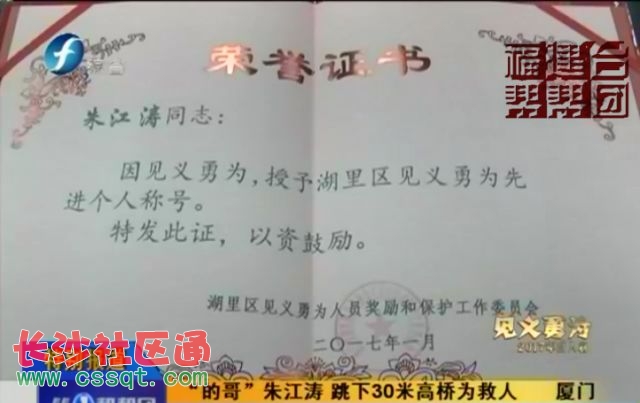 福建台
帮帮团
荣誉证书
朱江涛同志：
因见义勇为，授予湖里区见义勇为先
进个人称号。
特发此证，以资鼓励。
湖里区见义勇为人员奖励和保护工作委员会
二〇一七年一月
见义勇为
长沙社区通
www.cssqt.com
“的哥”朱江涛 跳下30米高桥为救人 厦门